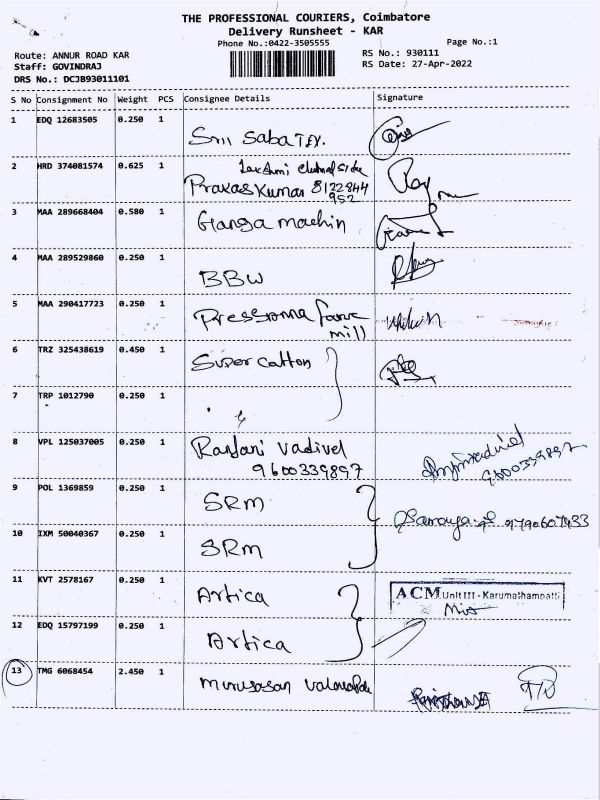 THE PROFESSIONAL COURIERS, Coimbatore
Delivery Runsheet - KAR
Phone No.:0422-3505555
Page No.:1
Route: ANNUR ROAD KAR
RS No.: 930111
Staff: GOVINDRAJ
RS Date: 27-Apr-2022
DRS No.: DCJB93011101
S No Consignment No Weight PCS Consignee Details Signature
1 EDQ 12683505 0.250 1 Sri Saba Tex.
2 HRD 374081574 0.625 1 Lakshmi
Prakas Kumar 8122844
952
3 MAA 289668404 0.580 1 Ganga machin
4 MAA 289529860 0.250 1 BBW
5 MAA 290417723 0.250 1
mill
6 TRZ 325438619 0.450 1 Super Cotton
7 TRP 1012790 0.250 1
8 VPL 125037005 0.250 1 Ranjani Vadivel
9600339897 9600339897
9 POL 1369859 0.250 1 SRM
Saranya 9790607433
10 IXM 50040367 0.250 1 SRM
11 KVT 2578167 0.250 1 Artica ACM Unit III - Karumathampatti
12 EDQ 15797199 0.250 1 Artica
13 TMG 6068454 2.450 1